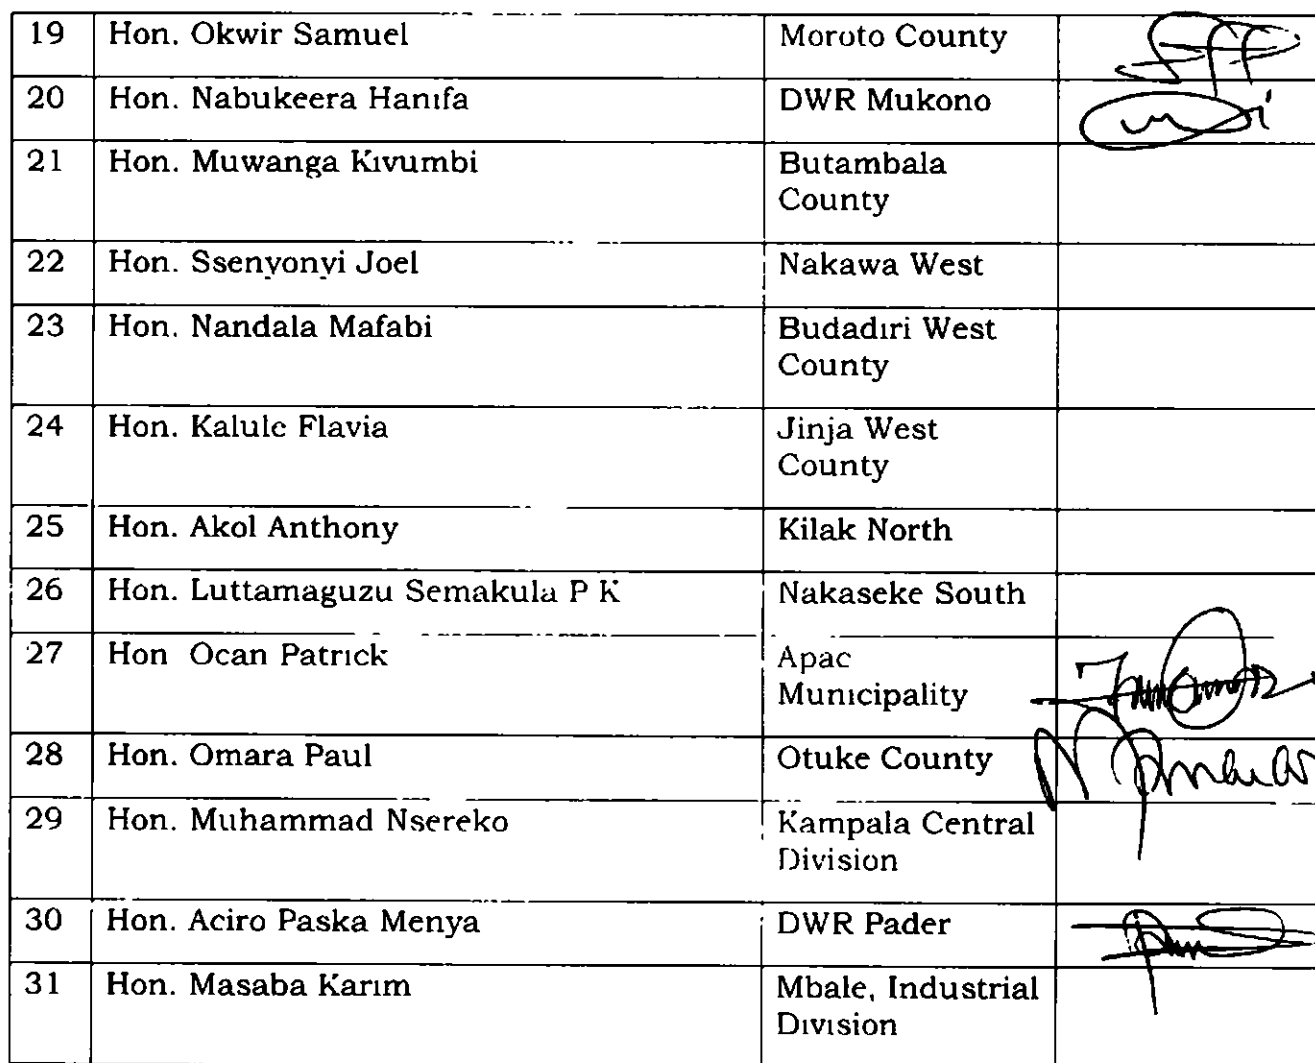 19 Hon. Okwir Samuel Moroto County
20 Hon. Nabukeera Hanıfa DWR Mukono
21 Hon. Muwanga Kıvumbi Butambala
County
22 Hon. Ssenyonyi Joel Nakawa West
23 Hon. Nandala Mafabi Budadırı West
County
24 Hon. Kalule Flavia Jinja West
County
25 Hon. Akol Anthony Kilak North
26 Hon. Luttamaguzu Semakula P K Nakaseke South
27 Hon Ocan Patrıck Apac
Munıcipality
28 Hon. Omara Paul Otuke County
29 Hon. Muhammad Nsereko Kampala Central
Division
30 Hon. Aciro Paska Menya DWR Pader
31 Hon. Masaba Karım Mbale, Industrial
Dıvısion